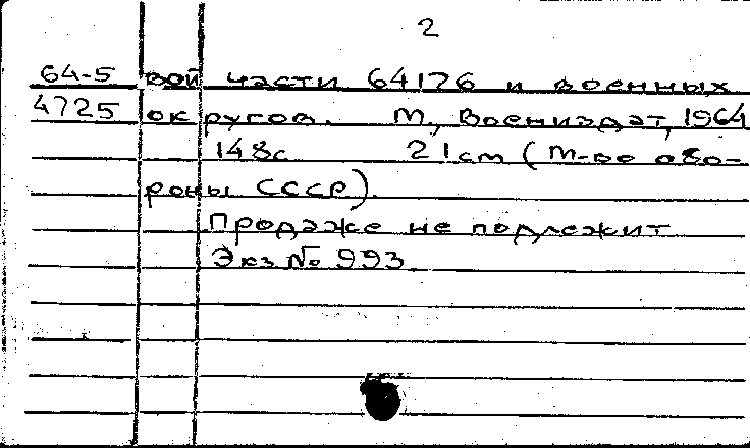 2
64-5 вой части 64176 и военных
4725 округов. М., Воениздат, 1964
148с 21см (М-во обо-
роны СССР).
Продаже не подлежит
Экз № 993